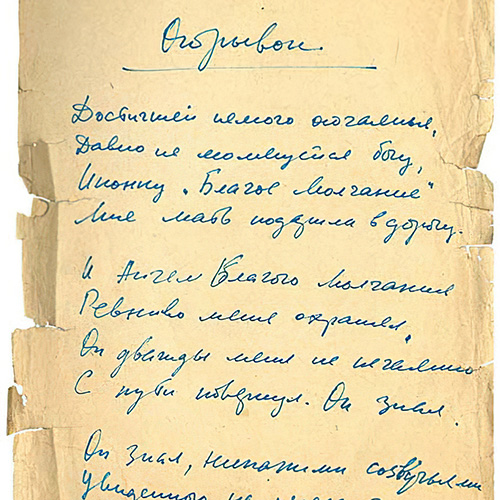 Отрывок.
Достигшей немого отчаянья,
Давно не молящейся богу,
Иконку „Благое Молчание"
Мне мать подарила в дорогу.
И Ангел Благого Молчания
Ревниво меня охранял.
Он дважды меня не нечаянно
С пути повернул. Он знал.
Он знал, никакими созвучьями
Увиденного не